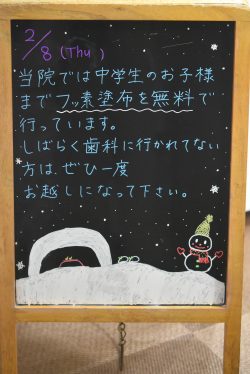 2/8 (Thu)
当院では中学生のお子様
までフッ素塗布を無料で
行っています。
しばらく歯科に行かれてない
方は、ぜひ一度
お越しになって下さい。